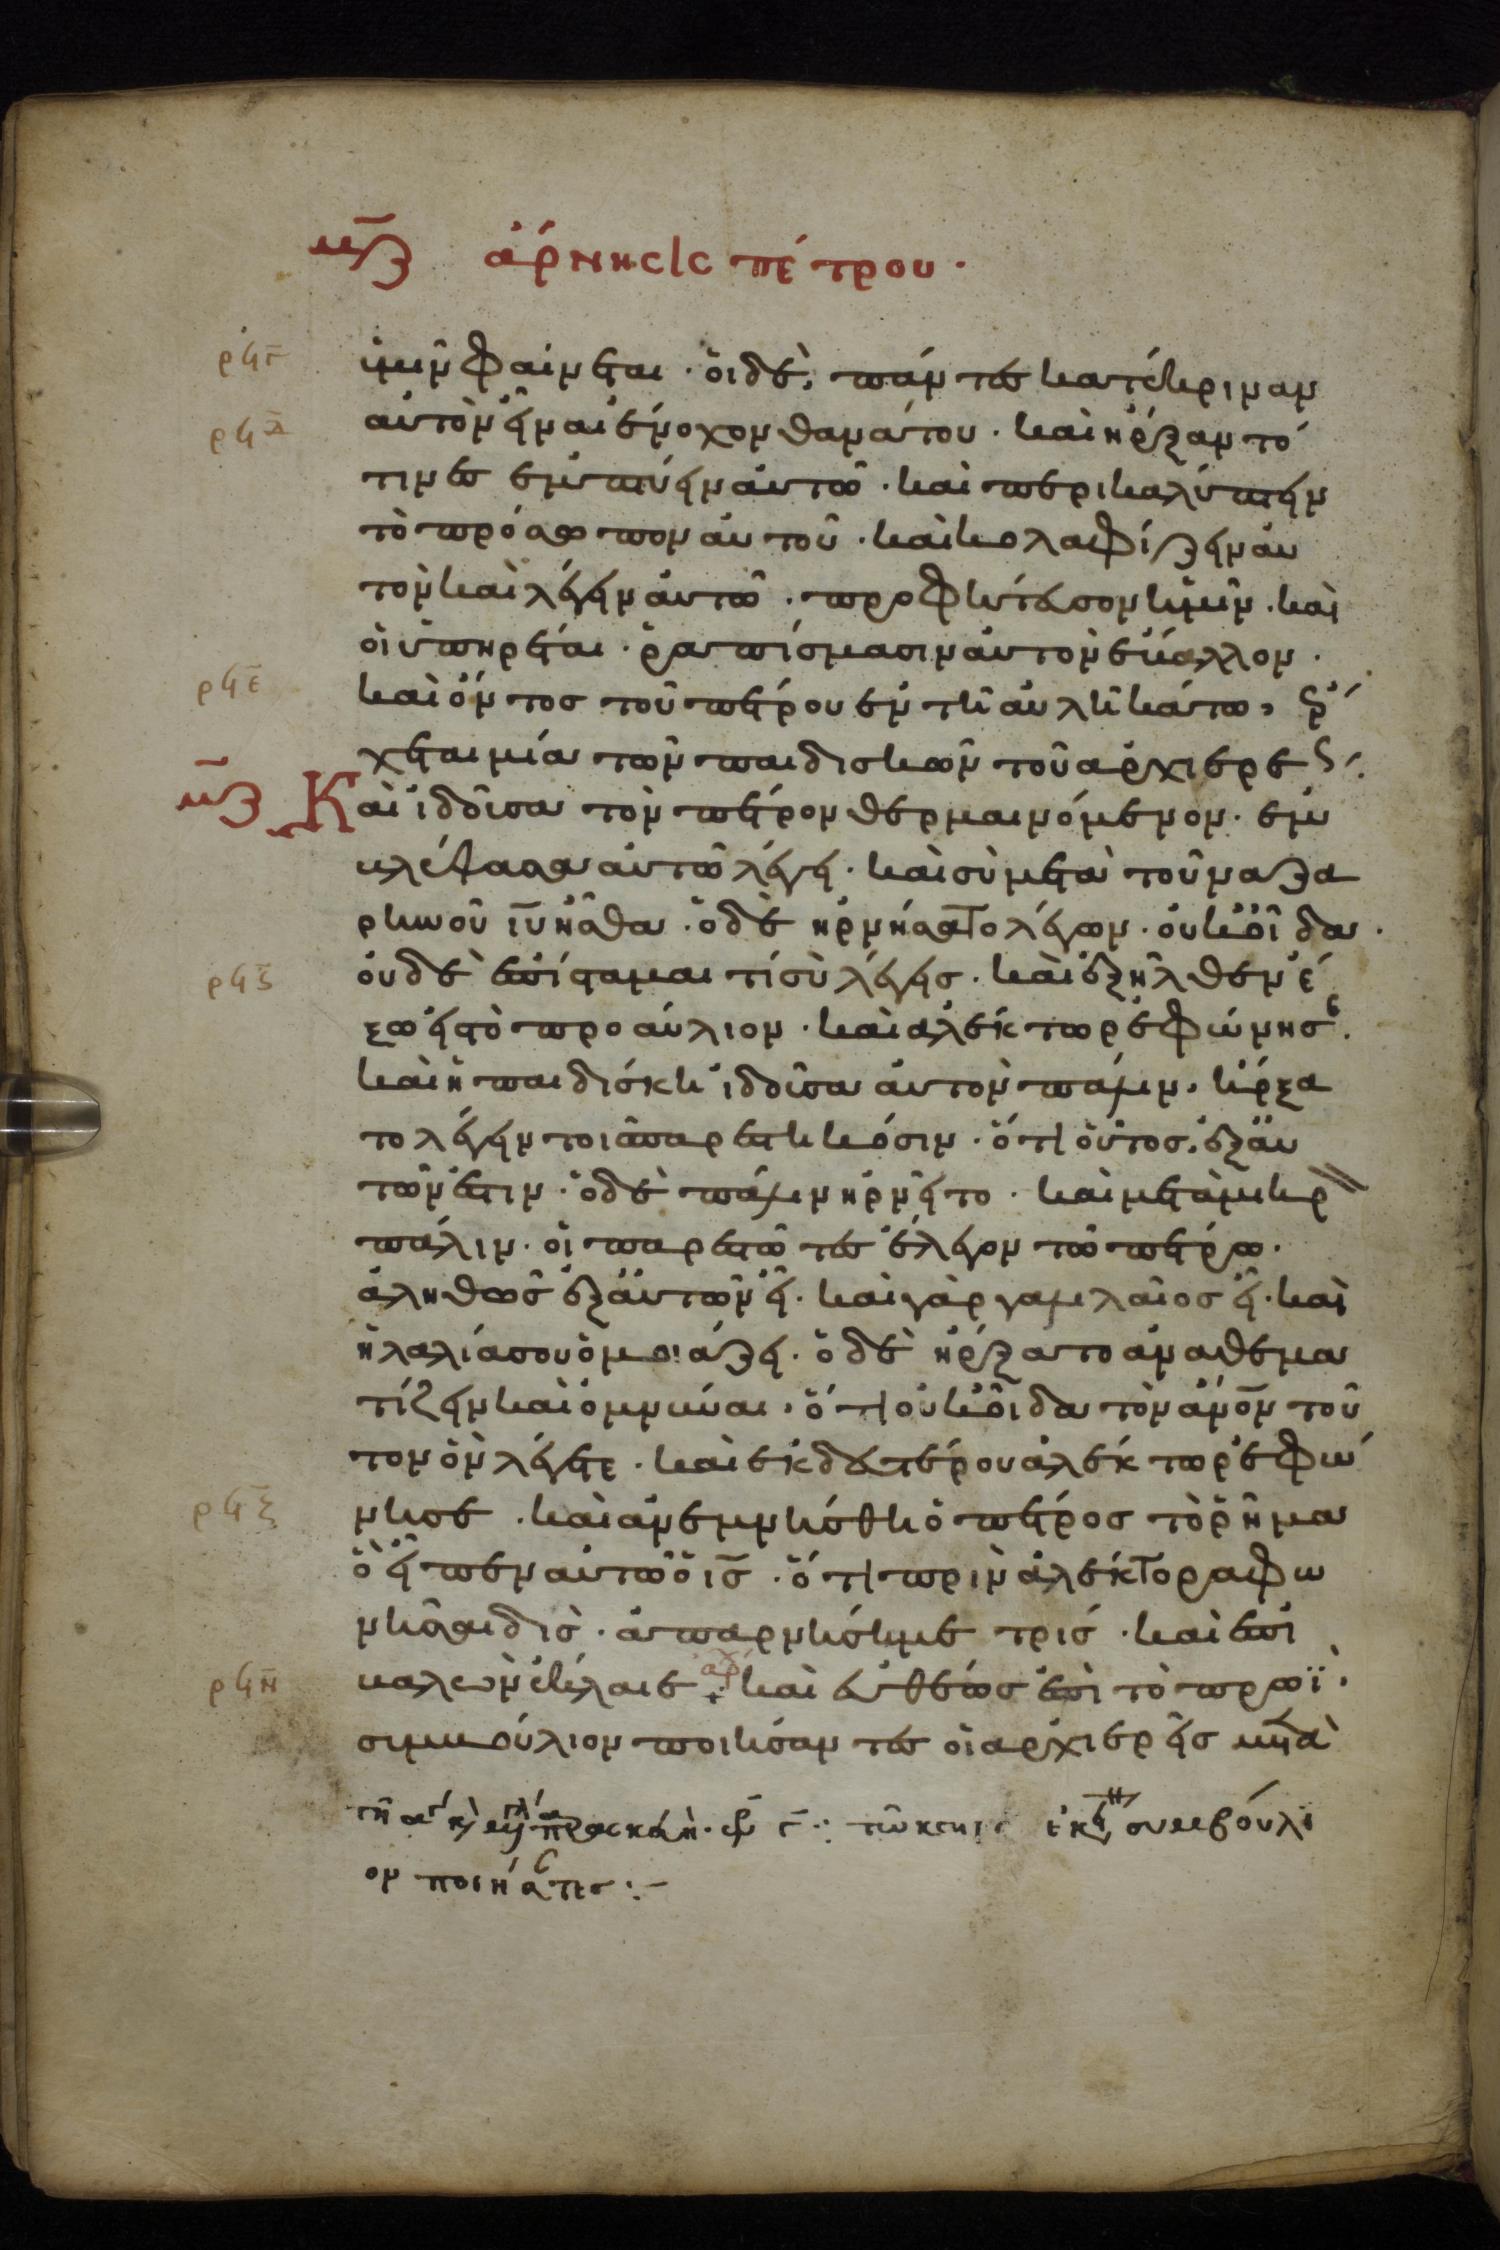 μζ ἄρνησις πέτρου ·
ρϟγ ὑμῖν φαίνεται · οἱ δὲ, πάντες κατέκριναν
ρϟδ αὐτὸν εἶναι ἔνοχον θανάτου · καὶ ἤρξαντό
τινες ἐμπτύειν αὐτῶ · καὶ περικαλύπτειν
τὸ πρόσωπον αὐτοῦ · καὶ κολαφίζειν αὐ
τὸν καὶ λέγειν αὐτῶ · προφήτευσον ἡμῖν · καὶ
οἱ ὑπηρέται · ῥαπίσμασιν αὐτὸν ἔβαλλον ·
ρϟε καὶ ὄντος τοῦ πέτρου ἐν τῆ αὐλῆ κάτω, ἔρ
χεται μία τῶν παιδισκῶν τοῦ ἀρχιερέως ·
μζ Καὶ ἰδοῦσα τὸν πέτρον θερμαινόμενον · ἐμ
βλέψασα αὐτῶ λέγει · καὶ σὺ μετὰ τοῦ ναζα
ρηνοῦ ιυ ἦσθα · ὁ δὲ ἠρνήσατο λέγων · οὐκ οἶδα ·
ρϟς οὐδὲ ἐπίσταμαι τί σὺ λέγεις · καὶ ἐξῆλθεν ἔ
ξω εἰς τὸ προαύλιον · καὶ ἀλέκτωρ ἐφώνησε ·
καὶ ἡ παιδίσκη ἰδοῦσα αὐτὸν πάλιν · ἤρξα
το λέγειν τοῖς παρεστηκόσιν · ὅτι οὗτος ἐξ αὐ
τῶν ἐστιν · ὁ δὲ πάλιν ἠρνεῖτο · καὶ μετὰ μικρ
πάλιν · οἱ παρεστῶτες ἔλεγον τῶ πέτρω ·
ἀληθῶς ἐξ αὐτῶν εἶ · καὶ γὰρ γαλιλαῖος εἶ · καὶ
ἡ λαλιά σου ὁμοιάζει · ὁ δὲ ἤρξατο ἀναθεμα
τίζειν καὶ ὀμνύναι · ὅτι οὐκ οἶδα τὸν ανον τοῦ
τον ὃν λέγετε · καὶ ἐκ δευτέρου ἀλέκτωρ ἐφώ
ρϟζ νησε · καὶ ἀνεμνήσθη ὁ πέτρος τὸ ῥῆμα
ὃ εἶπεν αὐτῶ ὁ ις · ὅτι πρὶν ἀλέκτορα φω
νῆσαι δὶς · ἀπαρνήση με τρίς · καὶ ἐπι
ρϟη βαλὼν ἔκλαιε · αρχ καὶ εὐθέως ἐπὶ τὸ πρωῒ ·
συμβούλιον ποιήσαντες οἱ ἀρχιερεῖς μετὰ
συμβούλι
ον ποιήσαντες :-